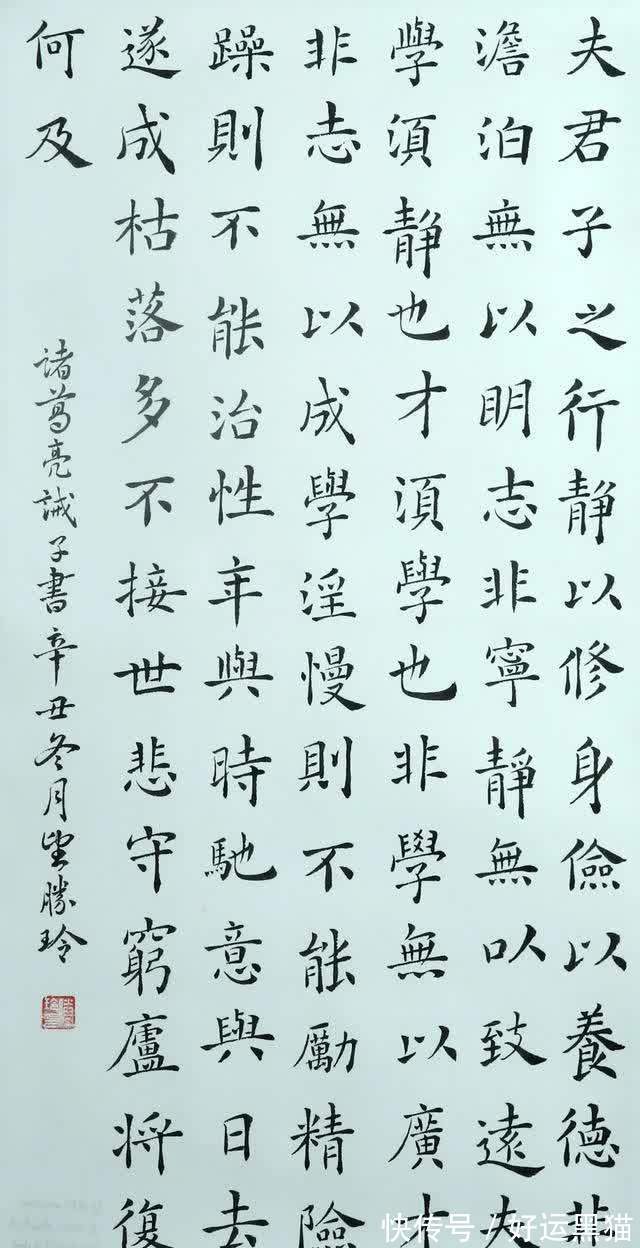 夫君子之行静以修身儉以養德非
澹泊無以明志非寧靜無以致遠夫
學須静也才須學也非學無以廣才
非志無以成學淫慢則不能勵精險
躁則不能治性年與時馳意與日去
遂成枯落多不接世悲守窮廬將復
何及
諸葛亮誡子書辛丑冬月望勝玲
快传号/好运黑猫